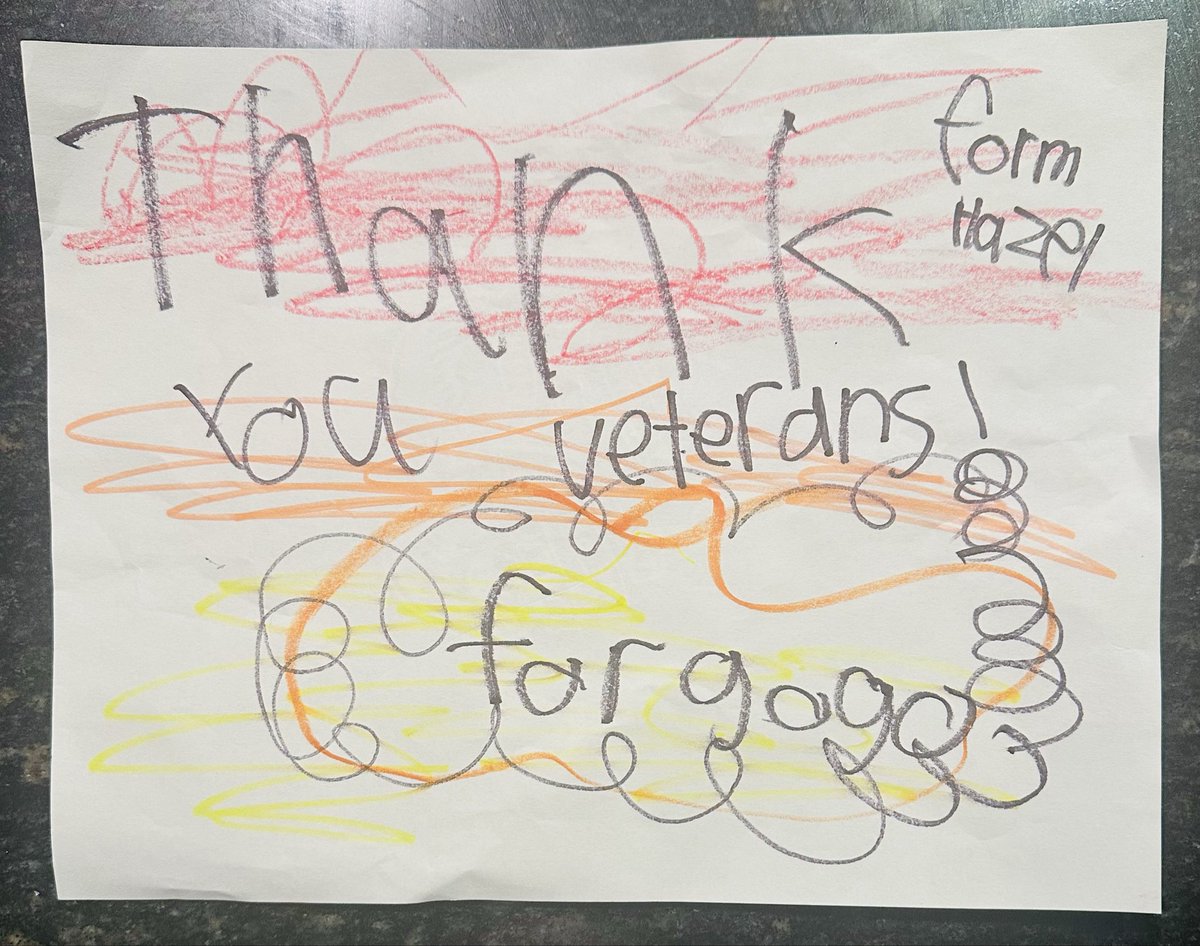 Thank
form
Hazel
you veterans!
for gogo